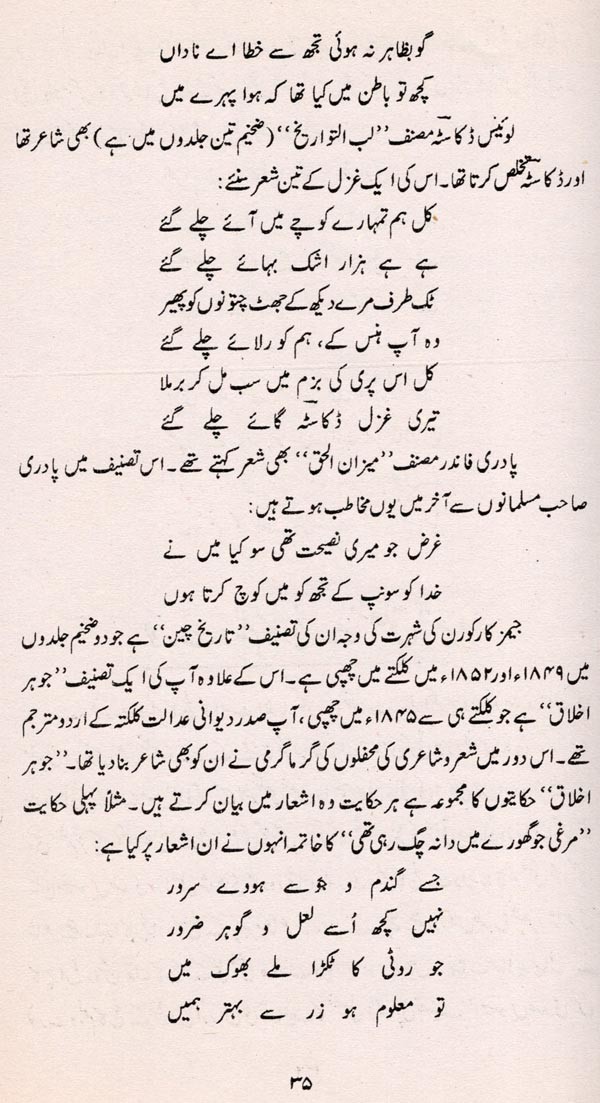 گو بظاہر نہ ہوئی تجھ سے خطا اے ناداں
کچھ تو باطن میں کیا تھا کہ ہوا پہرے میں
لوئیس ڈکاسٹہ مصنف ’’لب التواریخ‘‘ (ضخیم تین جلدوں میں ہے) بھی شاعر تھا
اور ڈکاسٹہ تخلص کرتا تھا۔ اس کی ایک غزل کے تین شعر سنئے:
کل ہم تمہارے کوچے میں آئے چلے گئے
ہے ہے ہزار اشک بہائے چلے گئے
ٹک طرف مرے دیکھ کے جھٹ چتونوں کو پھیر
وہ آپ ہنس کے، ہم کو رلائے چلے گئے
کل اس پری کی بزم میں سب مل کر برملا
تیری غزل ڈکاسٹہ گائے چلے گئے
پادری فانڈر مصنف ’’میزان الحق‘‘ بھی شعر کہتے تھے۔ اس تصنیف میں پادری
صاحب مسلمانوں سے آخر میں یوں مخاطب ہوتے ہیں:
غرض جو میری نصیحت تھی سو کیا میں نے
خدا کو سونپ کے تجھ کو میں کوچ کرتا ہوں
جیمز کارکورن کی شہرت کی وجہ ان کی تصنیف ’’تاریخ چین‘‘ ہے جو دو ضخیم جلدوں
میں ۱۸۴۹ء اور ۱۸۵۲ء میں کلکتے میں چھپی ہے۔ اس کے علاوہ آپ کی ایک تصنیف ’’جوہر
اخلاق‘‘ ہے جو کلکتے ہی سے ۱۸۴۵ء میں چھپی، آپ صدر دیوانی عدالت کلکتہ کے اردو مترجم
تھے۔ اس دور میں شعر و شاعری کی محفلوں کی گرما گرمی نے ان کو بھی شاعر بنا دیا تھا۔ ’’جوہر
اخلاق‘‘ حکایتوں کا مجموعہ ہے ہر حکایت وہ اشعار میں بیان کرتے ہیں۔ مثلاً پہلی حکایت
’’مرغی جو گھورے میں دانہ چگ رہی تھی‘‘ کا خاتمہ انہوں نے ان اشعار پر کیا ہے:
جسے گندم و جو سے ہووے سرور
نہیں کچھ اُسے لعل و گوہر ضرور
جو روٹی کا ٹکڑا ملے بھوک میں
تو معلوم ہو زر سے بہتر ہمیں
۳۵